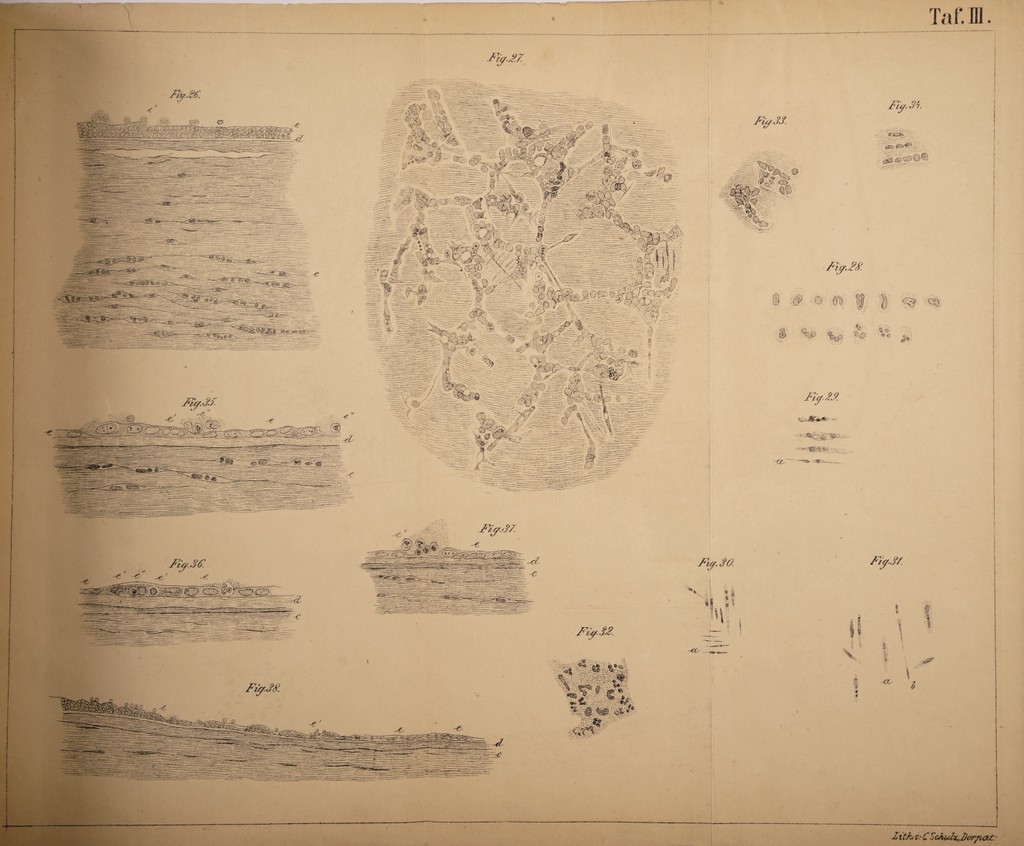 Taf. III.
Fig. 27.
Fig. 26.
e'
e
d
c
Fig. 33.
Fig. 34.
Fig. 28.
Fig. 29.
a
Fig. 35.
e
e'
e
d
c
Fig. 37.
e
d
c
Fig. 36.
e
e
d
c
Fig. 30.
a
Fig. 31.
a
b
Fig. 32.
Fig. 38.
e'
e
e
d
c
Lith. v. C Schulz, Dorpat.